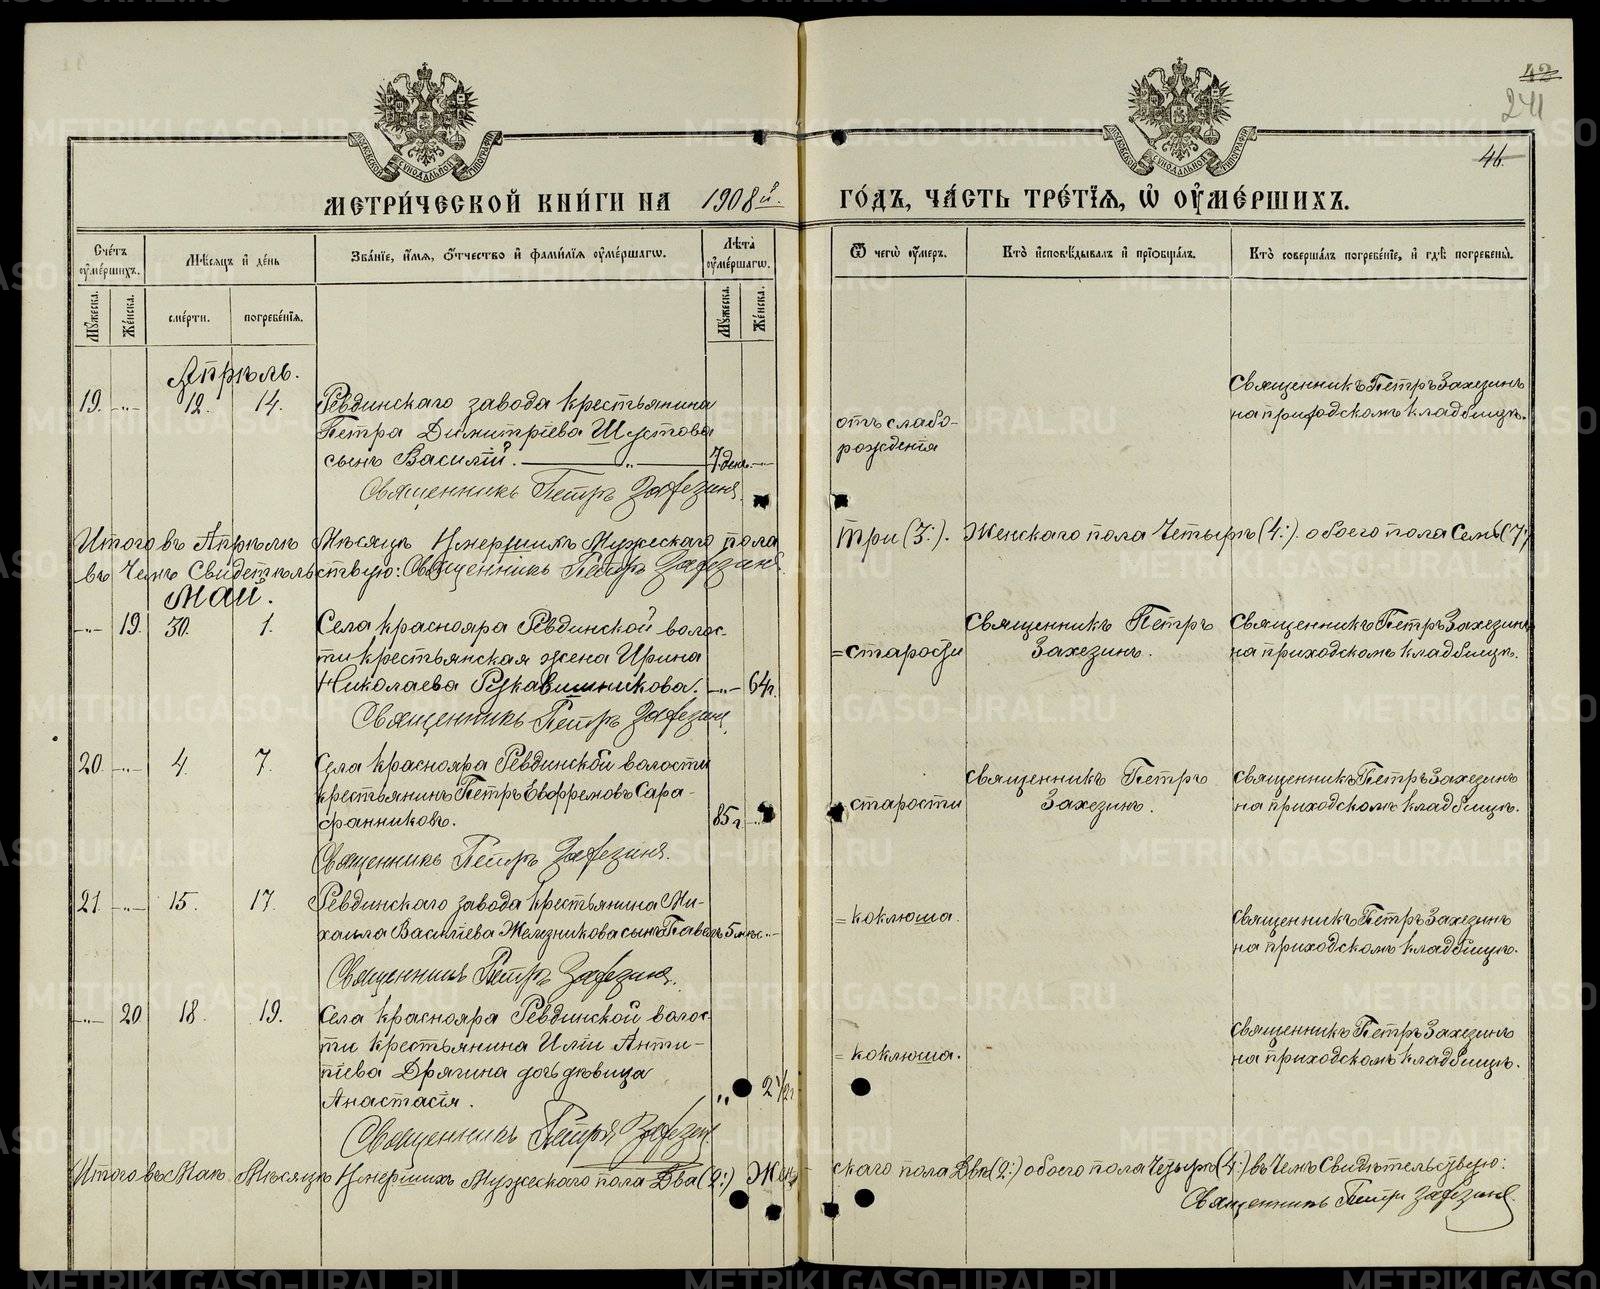 42
241
46
МЕТРИ́ЧЕСКОЙ КНИ́ГИ НА 1908й.
ГО́ДЪ, ЧА́СТЬ ТРЕ́ТЇѦ, Ѡ҆ ОУ҆МЕ́РШИХЪ.
Сче́тъ оу҆ме́ршихъ.
Мѣ́сѧцъ и҆ де́нь
Зва́нїе, и҆́мѧ, о҆́тчество и҆ фами́лїѧ оу҆ме́ршагѡ.
Лѣ́та оу҆ме́ршагѡ.
Ѿ чегѡ̀ оу҆́меръ.
Кто̀ и҆сповѣ́дывалъ и҆ прїѡбща́лъ.
Кто̀ соверша́лъ погребе́нїе, и҆ гдѣ̀ погребены̀.
Мꙋ́жеска.
Же́нска.
сме́рти.
погребе́нїѧ.
Мꙋ́жеска.
Же́нска.
Апрѣль.
19. -„- 12. 14. Ревдинскаго завода крестьянина
Петра Димитріева Шустова
сынъ Василій. 7 ден. -„-
Священникъ Петръ Захезинъ
отъ слабо-
рожденія
Священникъ Петръ Захезинъ
на приходскомъ кладбищѣ.
Итого въ Апрѣлѣ Мѣсяцѣ Умершихъ Мужескаго пола
Три (3:). Женскаго пола Четырѣ (4:). обоего пола Семь (7)
въ Чемъ Свидѣтельствую: Священникъ Петръ Захезинъ
Май.
-„- 19. 30. 1. Села Краснояра Ревдинской волос-
ти крестьянская жена Ирина
Николаева Рукавишникова. -„- 64 г.
Священникъ Петръ Захезинъ
= старости
Священникъ Петръ
Захезинъ.
Священникъ Петръ Захезинъ
на приходскомъ кладбищѣ.
20. -„- 4. 7. Села Краснояра Ревдинской волости
крестьянинъ Петръ Евфремовъ Сара-
фанниковъ. 85 г.
Священникъ Петръ Захезинъ.
= старости
Священникъ Петръ
Захезинъ.
Священникъ Петръ Захезинъ
на приходскомъ кладбищѣ.
21 -„- 15. 17. Ревдинскаго завода крестьянина Ми-
хаила Васильева Железникова сынъ Павелъ 5 мѣс. -„-
Священникъ Петръ Захезинъ.
= коклюша.
Священникъ Петръ Захезинъ
на приходскомъ кладбищѣ.
-„- 20 18. 19. Села Краснояра Ревдинской волос-
ти крестьянина Иліи Анти-
піева Дрягина дочь дѣвица
Анастасія. „ 2 1/2 г.
Священникъ Петръ Захезинъ
= коклюша.
Священникъ Петръ Захезинъ
на приходскомъ кладбищѣ.
Итого въ Маѣ Мѣсяцѣ Умершихъ Мужескаго пола Два (2:) Жен-
скаго пола Двѣ (2:) обоего пола Четырѣ (4:) въ Чемъ Свидѣтельствую:
Священникъ Петръ Захезинъ.
METRIKI.GASO-URAL.RU